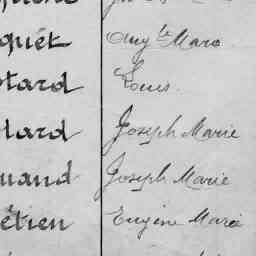 quét Aug.te Marie
tard Louis
lard Joseph Marie
uand Joseph Marie
étien Eugène Marie